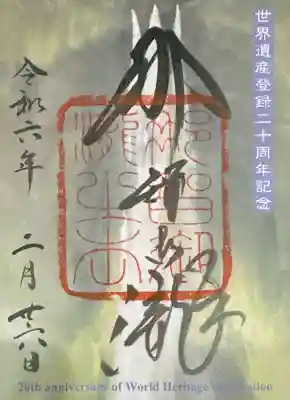 世界遺産登録二十周年記念
那智御瀧
令和六年
二月廿六日
20th anniversary of World Heritage